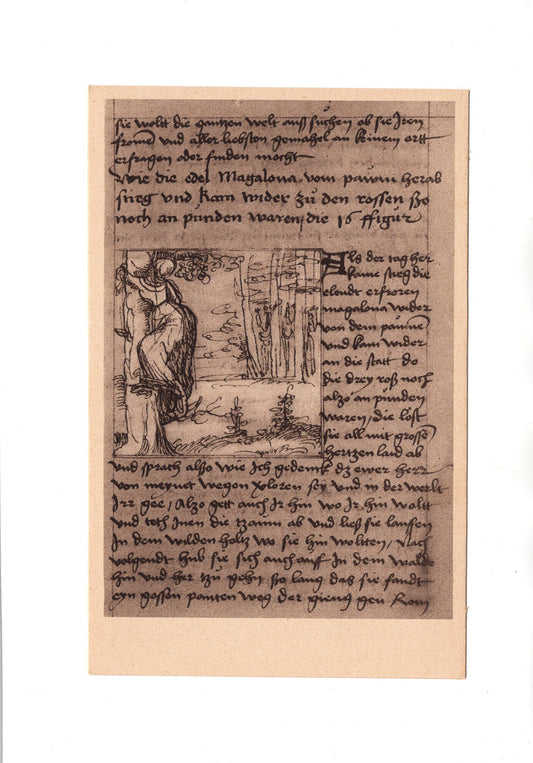 sie wollt die gantzen welt auß suchen ob sie Iren
fromen̄ und aller liebsten gemahel an keinem ortt
erfragen oder finden mocht
Wie die edel Magalona vom paum herab
stieg und kam wider zu den rossen ßo
noch an punden waren, die 16 ffigur
Als der tag her
kame stieg die
elendt erfroren
magalona wider
von dem paumē
und kam wider
an die statt do
die drey roß noch
alzo an punden
waren, die lost
sie all mit grossē
hertzen laid ab
und sprach alßo wie Ich gedenck dz ewer herr
von meynet wegen xloren sey und in der werlt
Irr gee, Alzo gett auch Ir hin wo Ir hin wollt
und teth Inen die tzaum ab und ließ sie lauffen
In dem wilden holtz wo sie hin woltten, Nach
volgendt hub sie sich auch auff In dem walde
hin und her tzu gehn sto lang das sie fandt
eyn gossen panten weg der gieng gen Rom